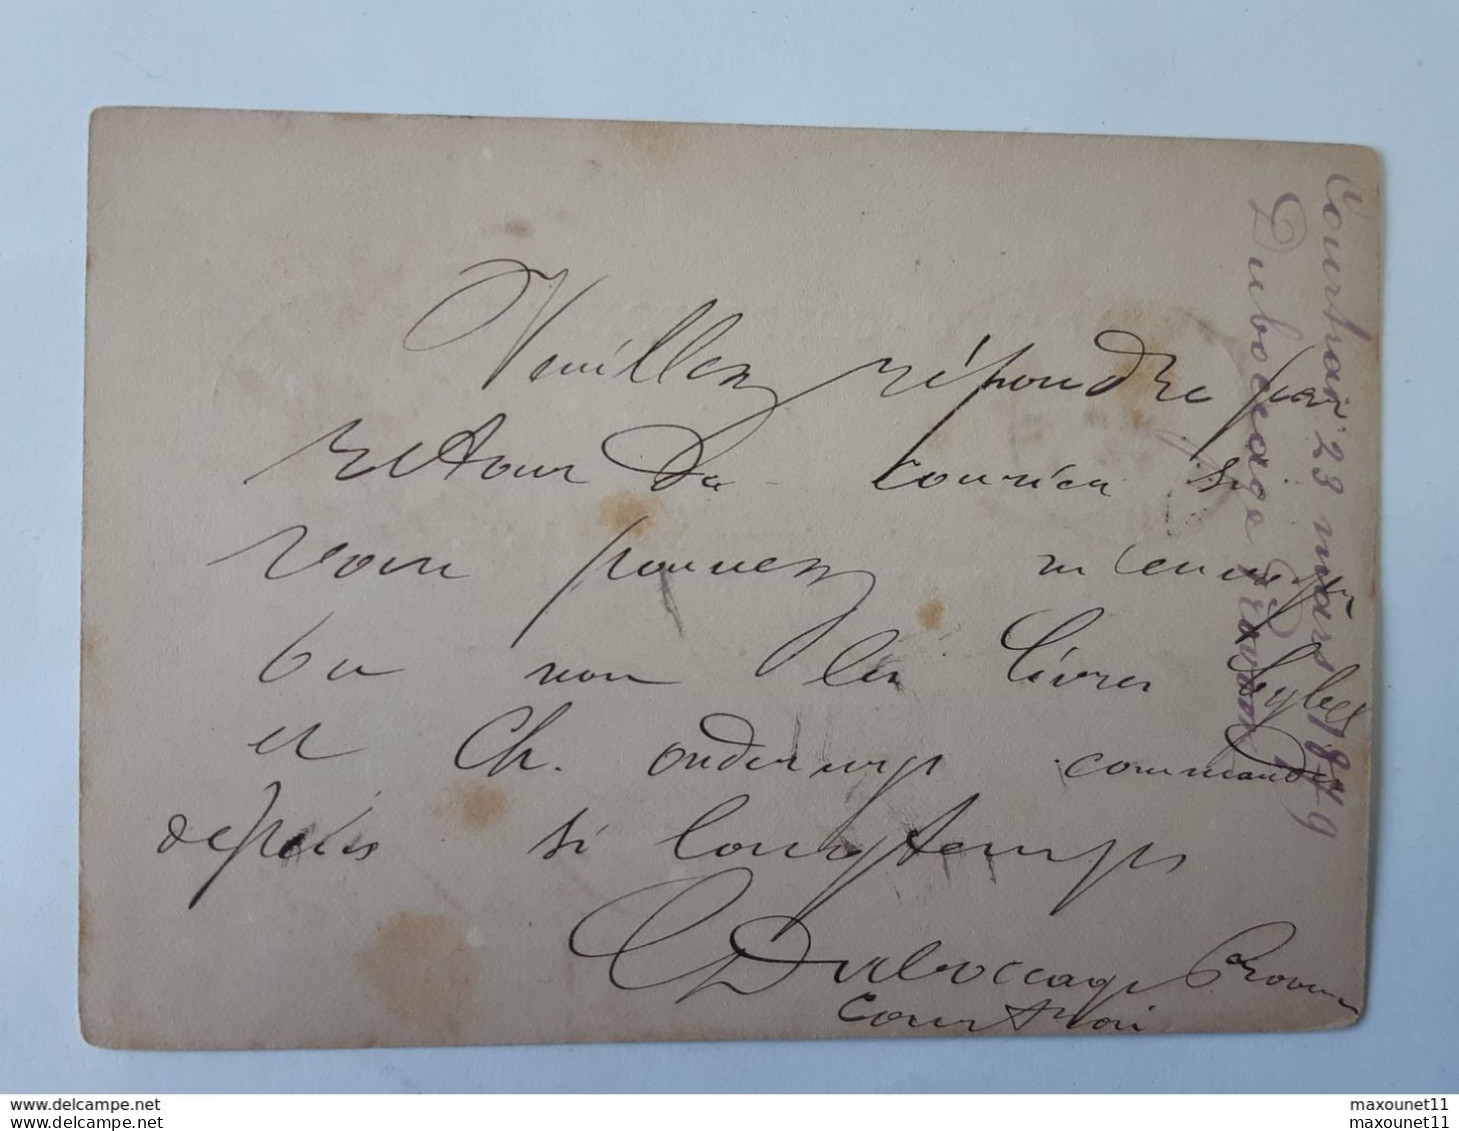 Veuillez répondre par
retour du courier si
vous pouvez m'envoyer
ou non les livres
et Ch. commandes
depuis si longtemps
Duboccage
Courtrai
Courtrai 23 mars 1879
Duboccage
maxounet11
maxounet11
maxounet11
maxounet11